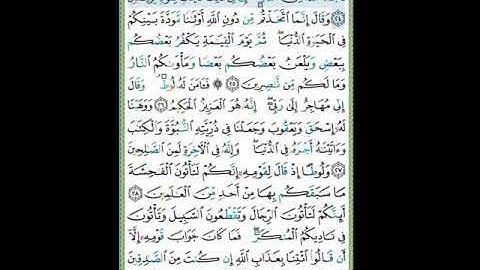 وَقَالَ إِنَّمَا ٱتَّخَذْتُم مِّن دُونِ ٱللَّهِ أَوْثَٰنًا مَّوَدَّةَ بَيْنِكُمْ
فِى ٱلْحَيَوٰةِ ٱلدُّنْيَا ۖ ثُمَّ يَوْمَ ٱلْقِيَٰمَةِ يَكْفُرُ بَعْضُكُم
بِبَعْضٍ وَيَلْعَنُ بَعْضُكُم بَعْضًا وَمَأْوَىٰكُمُ ٱلنَّارُ
وَمَا لَكُم مِّن نَّٰصِرِينَ ﴿٢٥﴾ ۞ فَـَٔامَنَ لَهُۥ لُوطٌ ۘ وَقَالَ
إِنِّى مُهَاجِرٌ إِلَىٰ رَبِّىٓ ۖ إِنَّهُۥ هُوَ ٱلْعَزِيزُ ٱلْحَكِيمُ ﴿٢٦﴾ وَوَهَبْنَا
لَهُۥٓ إِسْحَٰقَ وَيَعْقُوبَ وَجَعَلْنَا فِى ذُرِّيَّتِهِ ٱلنُّبُوَّةَ وَٱلْكِتَٰبَ
وَءَاتَيْنَٰهُ أَجْرَهُۥ فِى ٱلدُّنْيَا ۖ وَإِنَّهُۥ فِى ٱلْءَاخِرَةِ لَمِنَ ٱلصَّٰلِحِينَ
﴿٢٧﴾ وَلُوطًا إِذْ قَالَ لِقَوْمِهِۦٓ إِنَّكُمْ لَتَأْتُونَ ٱلْفَٰحِشَةَ
مَا سَبَقَكُم بِهَا مِنْ أَحَدٍ مِّنَ ٱلْعَٰلَمِينَ ﴿٢٨﴾
أَئِنَّكُمْ لَتَأْتُونَ ٱلرِّجَالَ وَتَقْطَعُونَ ٱلسَّبِيلَ وَتَأْتُونَ
فِى نَادِيكُمُ ٱلْمُنكَرَ ۖ فَمَا كَانَ جَوَابَ قَوْمِهِۦٓ إِلَّآ
أَن قَالُوا۟ ٱئْتِنَا بِعَذَابِ ٱللَّهِ إِن كُنتَ مِنَ ٱلصَّٰدِقِينَ